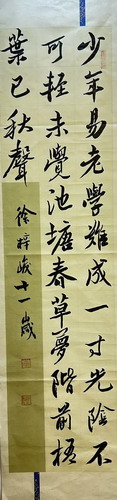 少年易老學難成一寸光陰不
可輕未覺池塘春草夢階前梧
葉已秋聲
徐梓峻十一歲